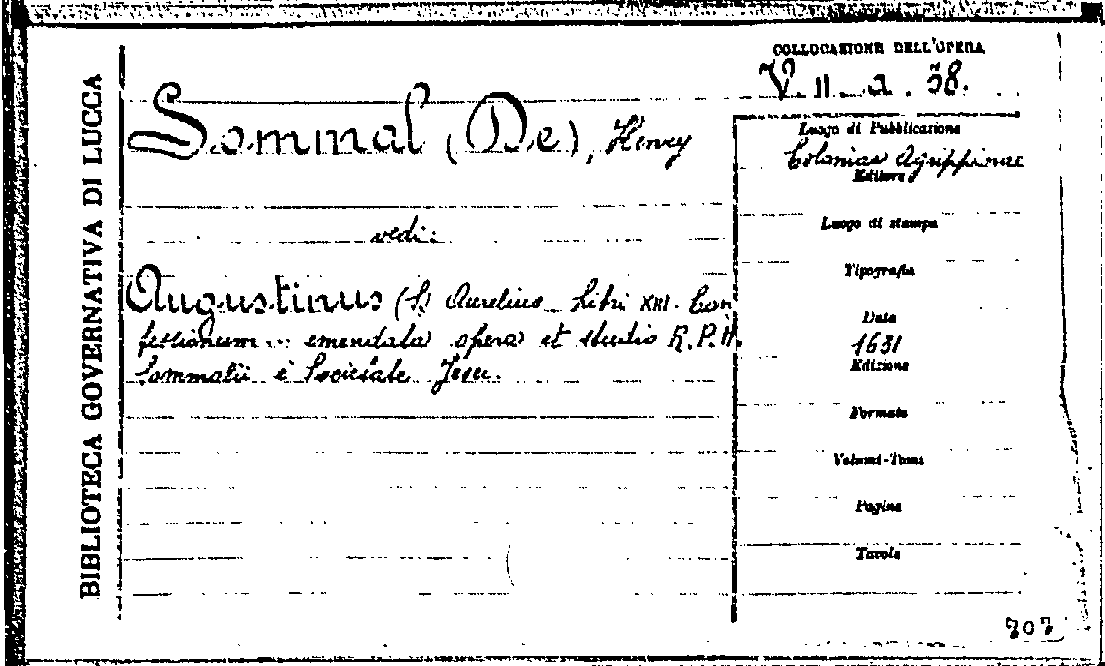 BIBLIOTECA GOVERNATIVA DI LUCCA
COLLOCAZIONE DELL'OPERA
V. II. a. 38.
Sommal (De), Henry
vedi:
Augustinus (S) Aurelius Libri XIII Con
fessionum... emendata opera et studio R.P.H.
Sommalii è Societate Jesu.
Luogo di Pubblicazione
Coloniae Agrippinae
Editore
Luogo di stampa
Tipografia
Data
1631
Edizione
Formato
Volumi-Tomi
Pagine
Tavole
707